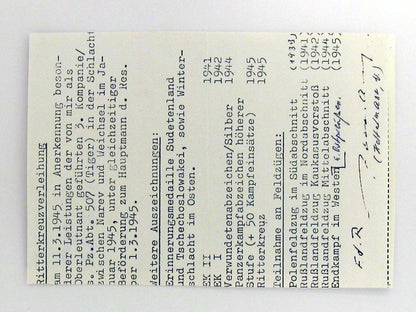 Ritterkreuzverleihung
am 11.3.1945 in Anerkennung beson-
derer Leistungen der von mir als
Oberleutnant geführten 3. Kompanie/
s. Pz.Abt. 507 (Tiger) in der Schlacht
zwischen Narev und Weichsel im Ja-
nuar 1945, unter gleichzeitiger
Beförderung zum Hauptmann d. Res.
per 1.3.1945.
Weitere Auszeichnungen:
Erinnerungsmedaille Sudetenland
und Tschechoslowakei, sowie Winter-
schlacht im Osten.
EK II 1941
EK I 1942
Verwundetenabzeichen/Silber 1944
Panzerkampfabzeichen höherer
Stufe (+ 50 Kampfeinsätze) 1945
Ritterkreuz 1945
Teilnahme an Feldzügen:
Polenfeldzug im Südabschnitt (1939)
Rußlandfeldzug im Nordabschnitt (1941)
Rußlandfeldzug Kaukasusvorstoß (1942)
Rußlandfeldzug Mittelabschnitt (1944)
Endkampf im Westen (1945)